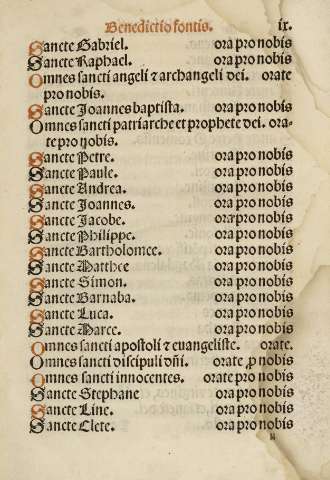 Benedictio fontis. ix.
Sancte Gabriel. ora pro nobis
Sancte Raphael. ora pro nobis
Omnes sancti angeli ⁊ archangeli dei. orate
pro nobis.
Sancte Joannes baptista. ora pro nobis
Omnes sancti patriarche et prophete dei. ora-
te pro nobis.
Sancte Petre. ora pro nobis
Sancte Paule. ora pro nobis
Sancte Andrea. ora pro nobis
Sancte Joannes. ora pro nobis
Sancte Jacobe. ora pro nobis
Sancte Philippe. ora pro nobis
Sancte Bartholomee. ora pro nobis
Sancte Matthee ora pro nobis
Sancte Simon. ora pro nobis
Sancte Barnaba. ora pro nobis
Sancte Luca. ora pro nobis
Sancte Marce. ora pro nobis
Omnes sancti apostoli ⁊ euangeliste. orate.
Omnes sancti discipuli dñi. orate ꝓ nobis
Omnes sancti innocentes. orate pro nobis
Sancte Stephane ora pro nobis
Sancte Line. ora pro nobis
Sancte Clete. ora pro nobis